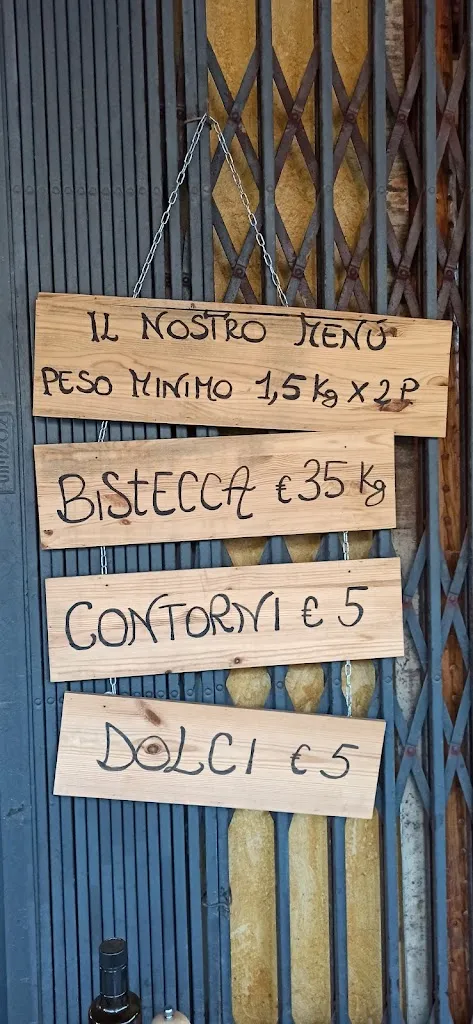 IL NOSTRO MENÚ
PESO MINIMO 1,5 Kg X 2 P
BISTECCA € 35 Kg
CONTORNI € 5
DOLCI € 5